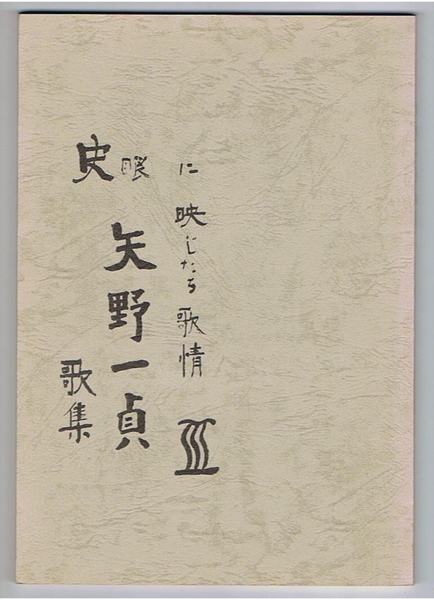 史眼
に映じたる歌情 III
矢野一貞
歌集